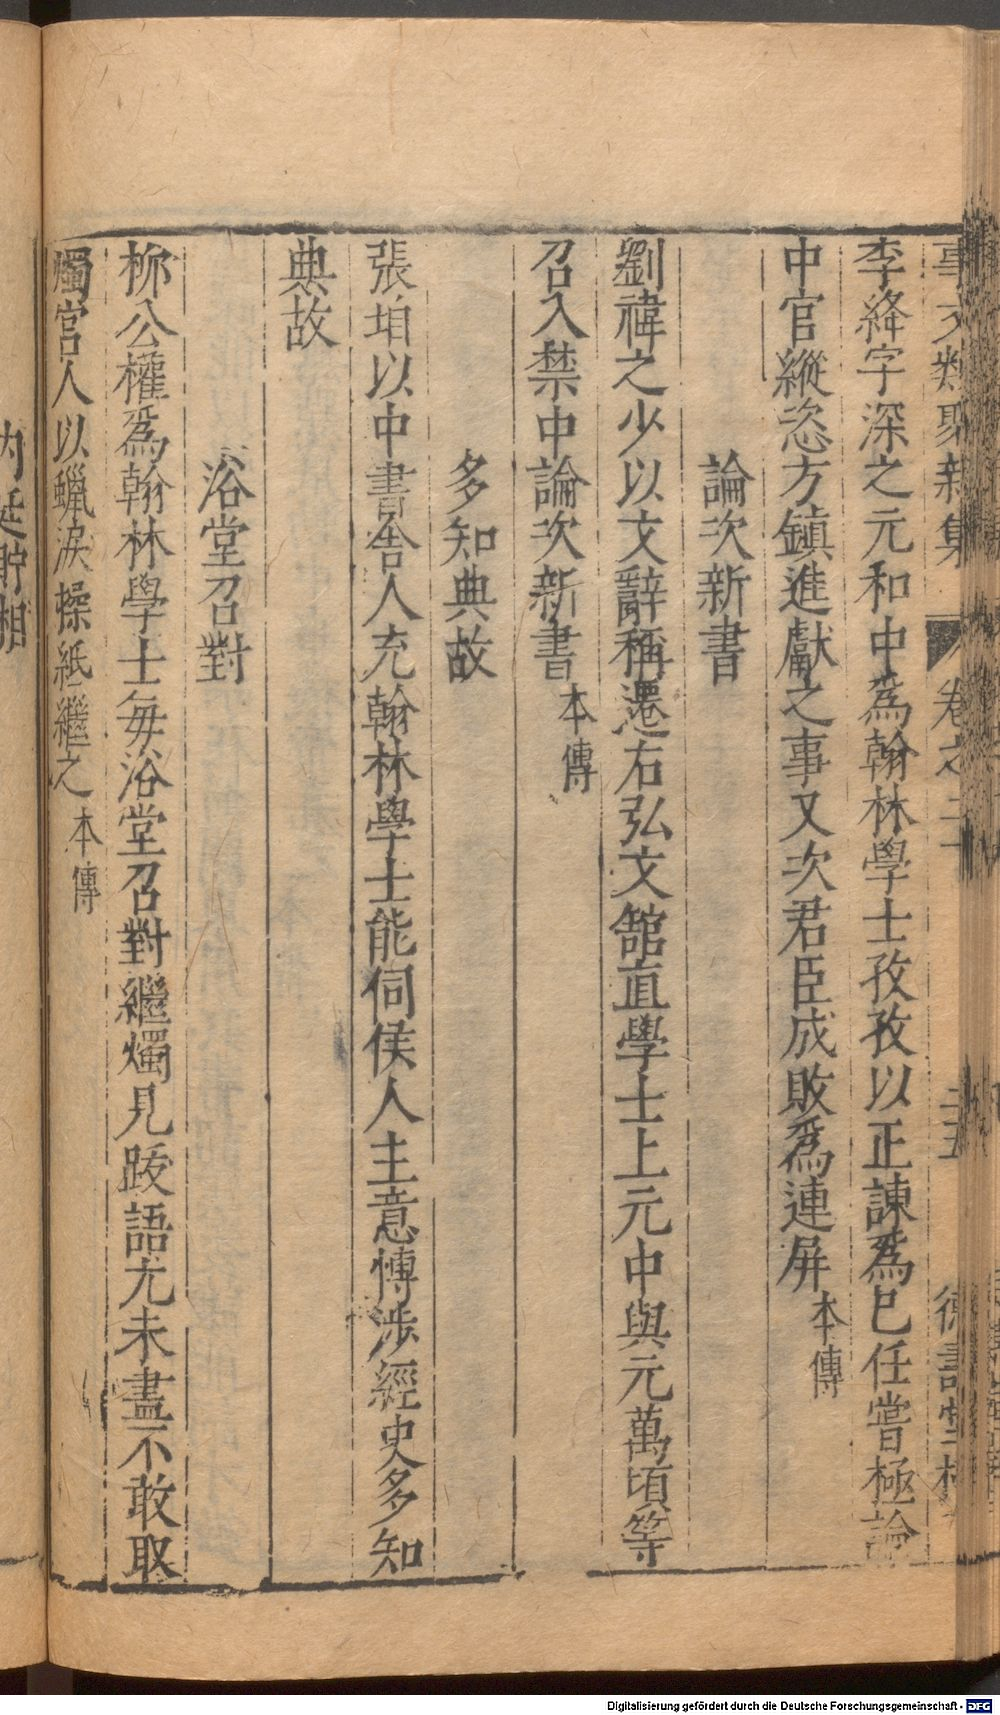 事文類聚新集 卷之二十 二五 德壽堂梓
李絳字深之元和中爲翰林學士孜孜以正諫爲巳任嘗極論
中官縱恣方鎮進獻之事又次君臣成敗爲連屏本傳
論次新書
劉禕之少以文辭稱遷右弘文舘直學士上元中與元萬頃等
召入禁中論次新書本傳
多知典故
張垍以中書舍人充翰林學士能伺侯人主意愽涉經史多知
典故
浴堂召對
栁公權爲翰林學士毎浴堂召對繼燭見跋語尢未盡不敢取
燭宫人以蠟涙揉紙繼之本傳
内廷貯相
Digitalisierung gefördert durch die Deutsche Forschungsgemeinschaft - DFG